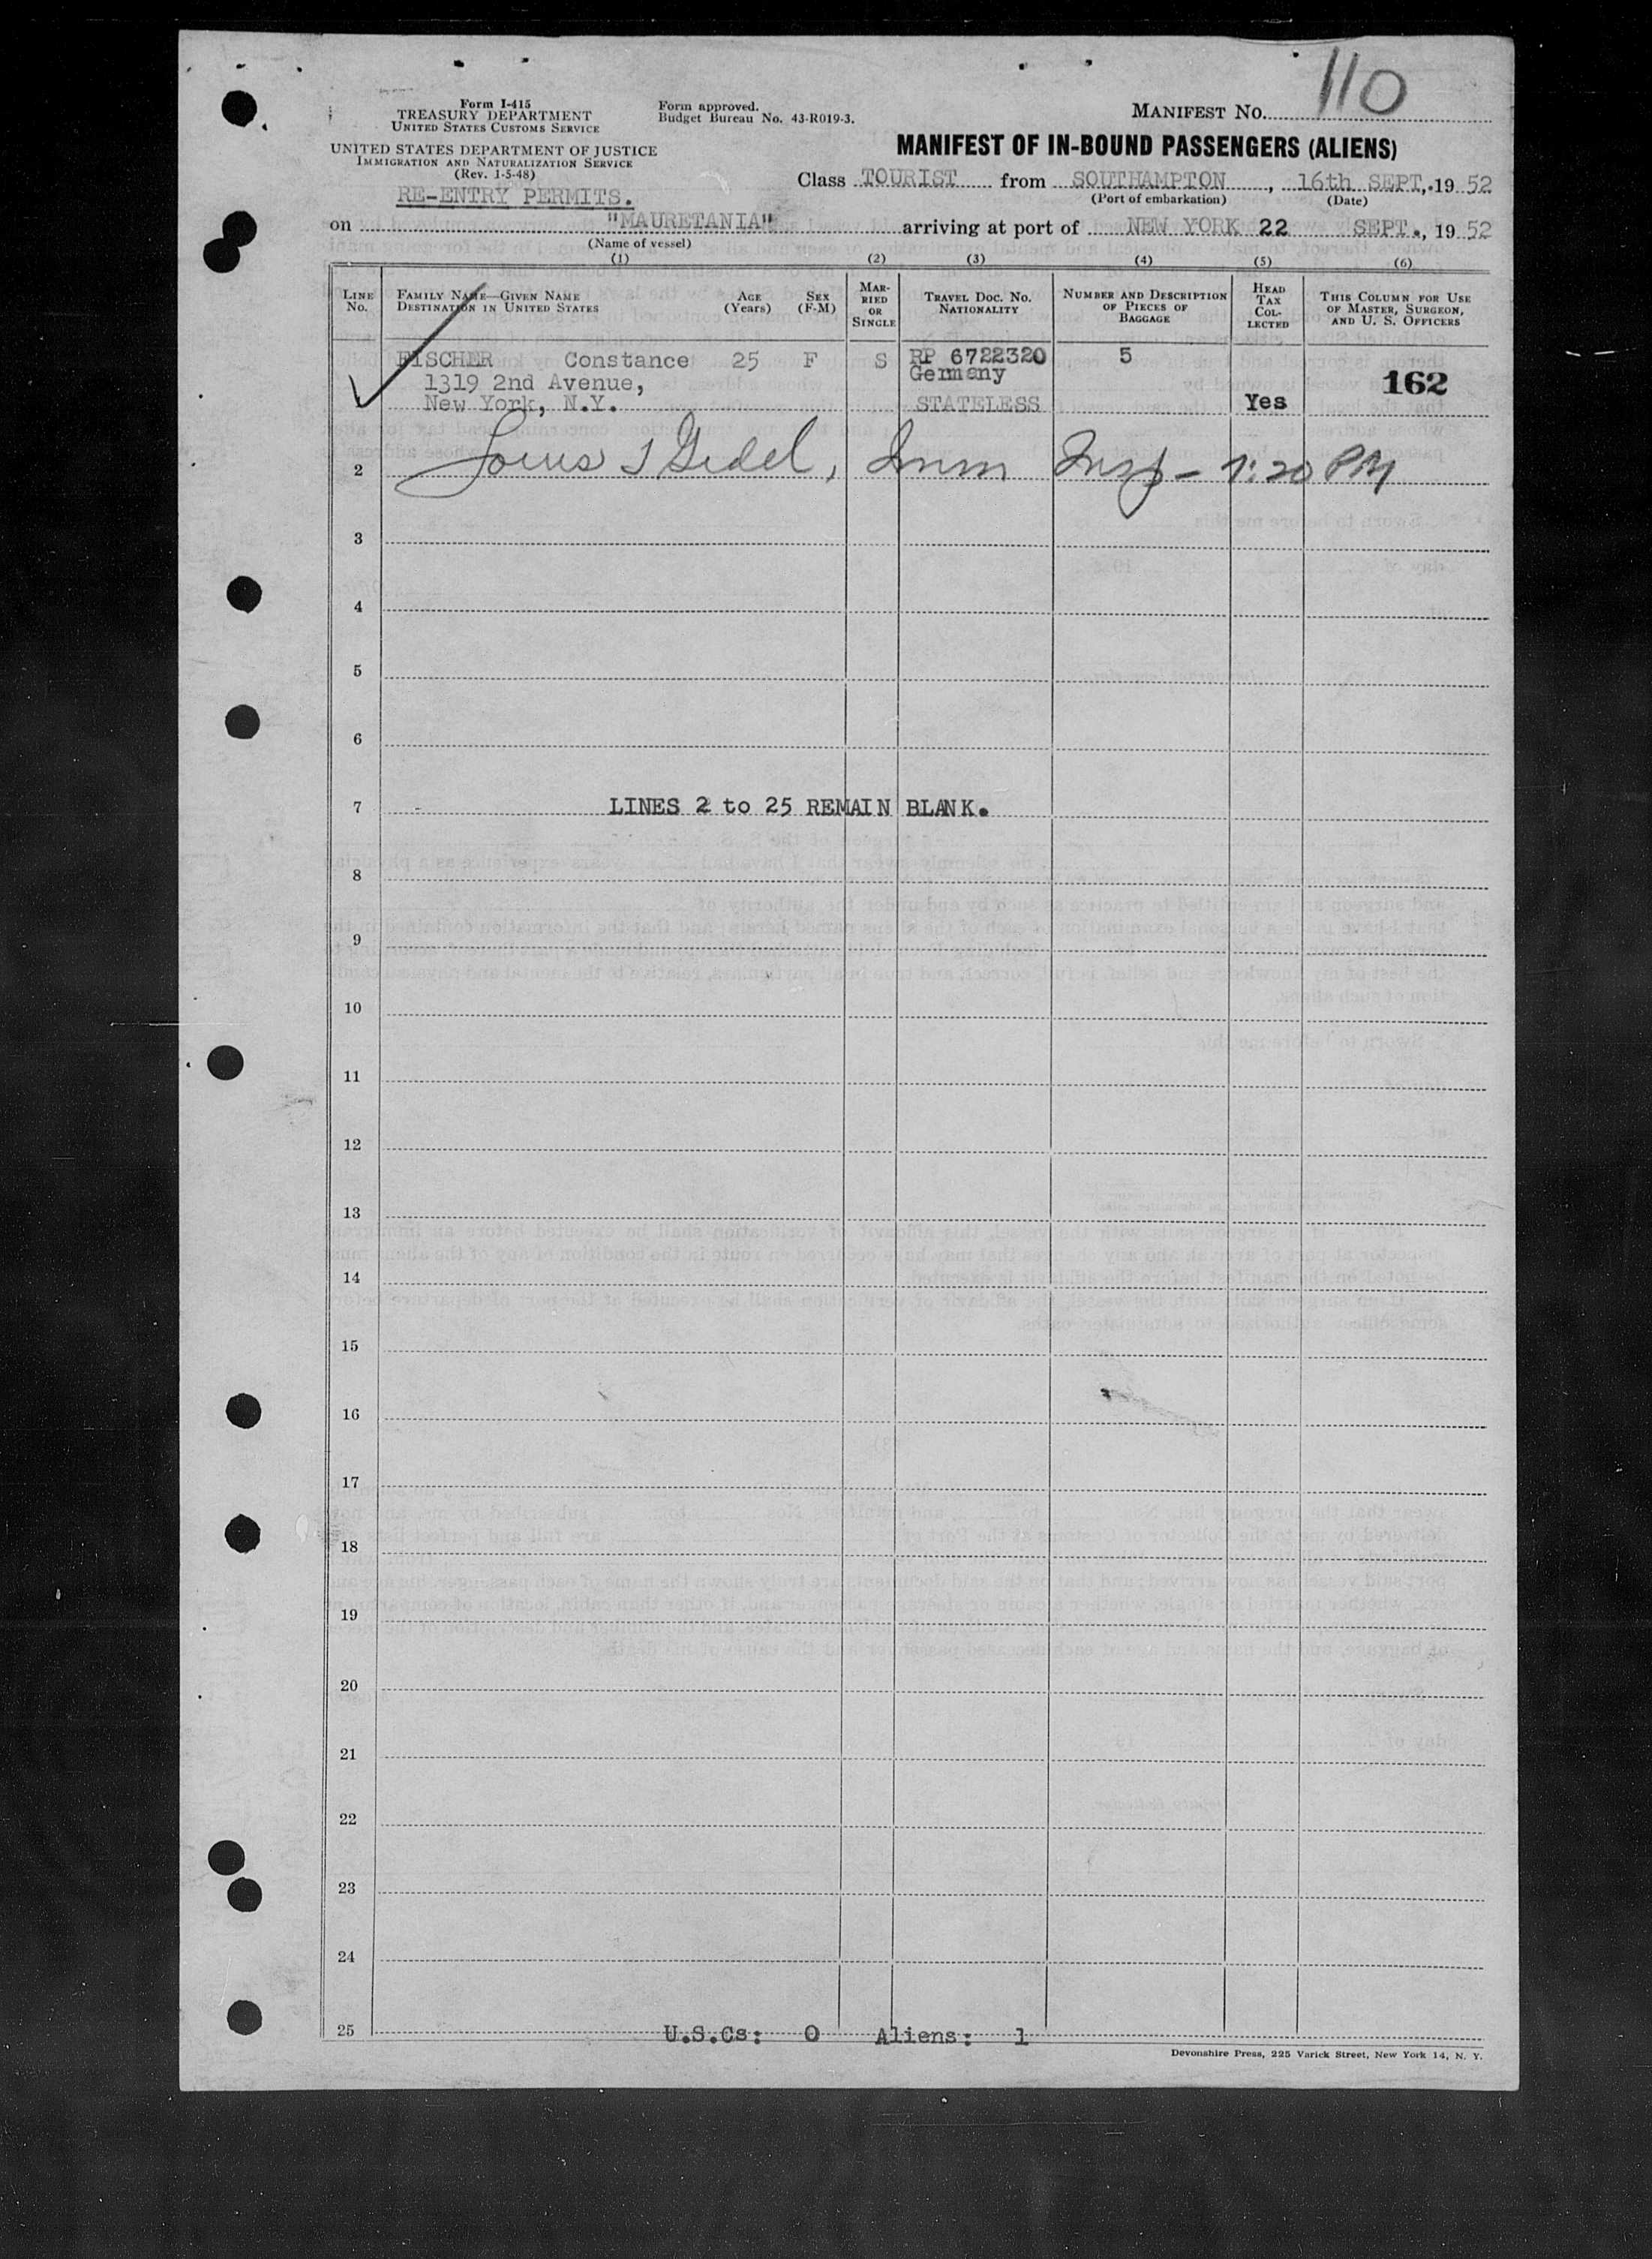 110
Form I-415
TREASURY DEPARTMENT
UNITED STATES CUSTOMS SERVICE
Form approved.
Budget Bureau No. 43-R019-3.
MANIFEST No.
UNITED STATES DEPARTMENT OF JUSTICE
IMMIGRATION AND NATURALIZATION SERVICE
(Rev. 1-5-48)
MANIFEST OF IN-BOUND PASSENGERS (ALIENS)
Class TOURIST from SOUTHAMPTON, 16th SEPT, 19 52
(Port of embarkation) (Date)
RE-ENTRY PERMITS.
on "MAURETANIA" arriving at port of NEW YORK 22 SEPT., 19 52
(Name of vessel)
(1) (2) (3) (4) (5) (6)
LINE No. FAMILY NAME—GIVEN NAME DESTINATION IN UNITED STATES AGE (Years) SEX (F-M) MARRIED OR SINGLE TRAVEL DOC. No. NATIONALITY NUMBER AND DESCRIPTION OF PIECES OF BAGGAGE HEAD TAX COLLECTED THIS COLUMN FOR USE OF MASTER, SURGEON, AND U. S. OFFICERS
FISCHER Constance 25 F S RP 6722320 5
1319 2nd Avenue, Germany 162
New York, N.Y. STATELESS Yes
2 Imm Insp - 1:20 PM
3
4
5
6
7 LINES 2 to 25 REMAIN BLANK.
8
9
10
11
12
13
14
15
16
17
18
19
20
21
22
23
24
25 U.S.Cs: 0 Aliens: 1
Devonshire Press, 225 Varick Street, New York 14, N. Y.